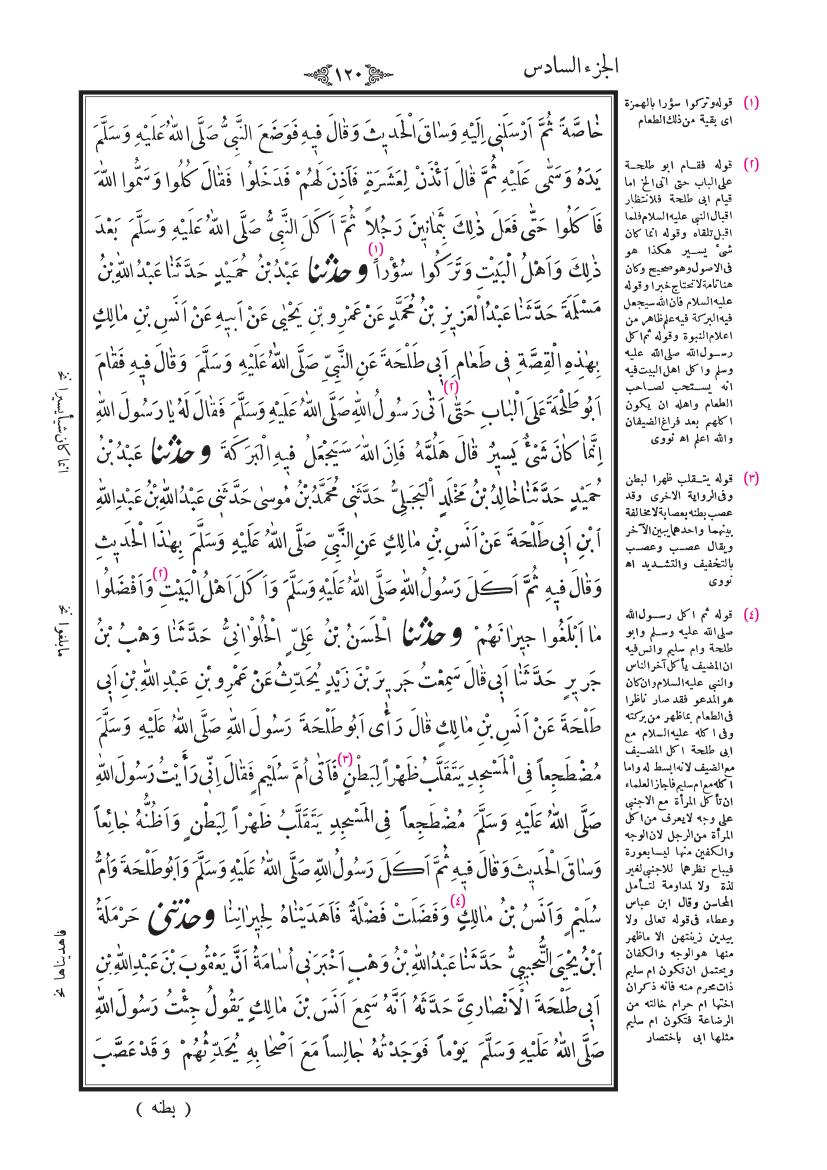 الجزء السادس
١٢٠
خَاصَّةً ثُمَّ اَرْسَلَنِي اِلَيْهِ وَسَاقَ الْحَدِيثَ وَقَالَ فِيهِ فَوَضَعَ النَّبِيُّ صَلَّى اللّٰهُ عَلَيْهِ وَسَلَّمَ
يَدَهُ وَسَمّٰى عَلَيْهِ ثُمَّ قَالَ ائْذَنْ لِعَشَرَةٍ فَاَذِنَ لَهُمْ فَدَخَلُوا فَقَالَ كُلُوا وَسَمُّوا اللّٰهَ
فَاَكَلُوا حَتّٰى فَعَلَ ذٰلِكَ بِثَمَانِينَ رَجُلاً ثُمَّ اَكَلَ النَّبِيُّ صَلَّى اللّٰهُ عَلَيْهِ وَسَلَّمَ بَعْدَ
ذٰلِكَ وَاَهْلُ الْبَيْتِ وَتَرَكُوا سُؤْراً (١) وحَدَّثَنَا عَبْدُ بْنُ حُمَيْدٍ حَدَّثَنَا عَبْدُ اللّٰهِ بْنُ
مَسْلَمَةَ حَدَّثَنَا عَبْدُ الْعَزِيزِ بْنُ مُحَمَّدٍ عَنْ عَمْرِو بْنِ يَحْيٰى عَنْ اَبِيهِ عَنْ اَنَسِ بْنِ مَالِكٍ
بِهٰذِهِ الْقِصَّةِ فِي طَعَامِ اَبِي طَلْحَةَ عَنِ النَّبِيِّ صَلَّى اللّٰهُ عَلَيْهِ وَسَلَّمَ وَقَالَ فِيهِ فَقَامَ
اَبُو طَلْحَةَ عَلَى الْبَابِ حَتّٰى (٢) اَتٰى رَسُولُ اللّٰهِ صَلَّى اللّٰهُ عَلَيْهِ وَسَلَّمَ فَقَالَ لَهُ يَا رَسُولَ اللّٰهِ
اِنَّمَا كَانَ شَيْءٌ يَسِيرٌ قَالَ هَلُمَّهُ فَاِنَّ اللّٰهَ سَيَجْعَلُ فِيهِ الْبَرَكَةَ وحَدَّثَنَا عَبْدُ بْنُ
حُمَيْدٍ حَدَّثَنَا خَالِدُ بْنُ مَخْلَدٍ الْبَجَلِيُّ حَدَّثَنِي مُحَمَّدُ بْنُ مُوسٰى حَدَّثَنِي عَبْدُ اللّٰهِ بْنُ عَبْدِ اللّٰهِ
ابْنِ اَبِي طَلْحَةَ عَنْ اَنَسِ بْنِ مَالِكٍ عَنِ النَّبِيِّ صَلَّى اللّٰهُ عَلَيْهِ وَسَلَّمَ بِهٰذَا الْحَدِيثِ
وَقَالَ فِيهِ ثُمَّ اَكَلَ رَسُولُ اللّٰهِ صَلَّى اللّٰهُ عَلَيْهِ وَسَلَّمَ وَاَكَلَ اَهْلُ الْبَيْتِ (٢) وَاَفْضَلُوا
مَا اَبْلَغُوا جِيرَانَهُمْ وحَدَّثَنَا الْحَسَنُ بْنُ عَلِيٍّ الْحُلْوَانِيُّ حَدَّثَنَا وَهْبُ بْنُ
جَرِيرٍ حَدَّثَنَا اَبِي قَالَ سَمِعْتُ جَرِيرَ بْنَ زَيْدٍ يُحَدِّثُ عَنْ عَمْرِو بْنِ عَبْدِ اللّٰهِ بْنِ اَبِي
طَلْحَةَ عَنْ اَنَسِ بْنِ مَالِكٍ قَالَ رَأٰى اَبُو طَلْحَةَ رَسُولَ اللّٰهِ صَلَّى اللّٰهُ عَلَيْهِ وَسَلَّمَ
مُضْطَجِعاً فِي الْمَسْجِدِ يَتَقَلَّبُ ظَهْراً لِبَطْنٍ (٣) فَاَتٰى اُمَّ سُلَيْمٍ فَقَالَ اِنِّي رَأَيْتُ رَسُولَ اللّٰهِ
صَلَّى اللّٰهُ عَلَيْهِ وَسَلَّمَ مُضْطَجِعاً فِي الْمَسْجِدِ يَتَقَلَّبُ ظَهْراً لِبَطْنٍ وَاَظُنُّهُ جَائِعاً
وَسَاقَ الْحَدِيثَ وَقَالَ فِيهِ ثُمَّ اَكَلَ رَسُولُ اللّٰهِ صَلَّى اللّٰهُ عَلَيْهِ وَسَلَّمَ وَاَبُو طَلْحَةَ وَاُمُّ
سُلَيْمٍ وَاَنَسُ بْنُ مَالِكٍ (٤) وَفَضَلَتْ فَضْلَةٌ فَاَهْدَيْنَاهُ لِجِيرَانِنَا وحَدَّثَنِي حَرْمَلَةُ
ابْنُ يَحْيَى التُّجِيبِيُّ حَدَّثَنَا عَبْدُ اللّٰهِ بْنُ وَهْبٍ اَخْبَرَنِي اُسَامَةُ اَنَّ يَعْقُوبَ بْنَ عَبْدِ اللّٰهِ بْنِ
اَبِي طَلْحَةَ الْاَنْصَارِيَّ حَدَّثَهُ اَنَّهُ سَمِعَ اَنَسَ بْنَ مَالِكٍ يَقُولُ جِئْتُ رَسُولَ اللّٰهِ
صَلَّى اللّٰهُ عَلَيْهِ وَسَلَّمَ يَوْماً فَوَجَدْتُهُ جَالِساً مَعَ اَصْحَابِهِ يُحَدِّثُهُمْ وَقَدْ عَصَّبَ
( بطنه )
(١) قوله وتركوا سؤرا بالهمزة
اى بقية من ذلك الطعام
(٢) قوله فقام ابو طلحة
على الباب حتى اتى الخ اما
قيام ابى طلحة فلانتظار
اقبال النبى عليه السلام فلما
اقبل تلقاه وقوله انما كان
شىء يسير هكذا هو
فى الاصول وهو صحيح وكان
هنا تامة لا تحتاج خبرا وقوله
عليه السلام فان الله سيجعل
فيه البركة فيه علم ظاهر من
اعلام النبوة وقوله ثم اكل
رسول الله صلى الله عليه
وسلم واكل اهل البيت فيه
انه يستحب لصاحب
الطعام واهله ان يكون
اكلهم بعد فراغ الضيفان
والله اعلم اه نووى
(٣) قوله يتقلب ظهرا لبطن
وفى الرواية الاخرى وقد
عصب بطنه بعصابة لا مخالفة
بينهما واحدهما يبين الآخر
ويقال عصب وعصب
بالتخفيف والتشديد اه
نووى
(٤) قوله ثم اكل رسول الله
صلى الله عليه وسلم وابو
طلحة وام سليم وانس فيه
ان المضيف يأكل آخر الناس
والنبى عليه السلام وان كان
هو المدعو فقد صار ناظرا
فى الطعام بما ظهر من بركته
وفى اكله عليه السلام مع
ابى طلحة اكل المضيف
مع الضيف لانه ابسط له واما
اكله مع ام سليم فاجاز العلماء
ان تأكل المرأة مع الاجنبى
على وجه لا يعرف من اكل
المرأة من الرجل لان الوجه
والكفين منها ليسا بعورة
فيباح نظرهما للاجنبى لغير
لذة ولا لمداومة لتأمل
المحاسن وقال ابن عباس
وعطاء فى قوله تعالى ولا
يبدين زينتهن الا ما ظهر
منها هو الوجه والكفان
ويحتمل ان تكون ام سليم
ذات محرم منه فانه ذكر ان
اختها ام حرام خالته من
الرضاعة فتكون ام سليم
مثلها ابى باختصار
انما كان شيأ يسيرا نخ
ما بلغوا نخ
فاهديناها نخ